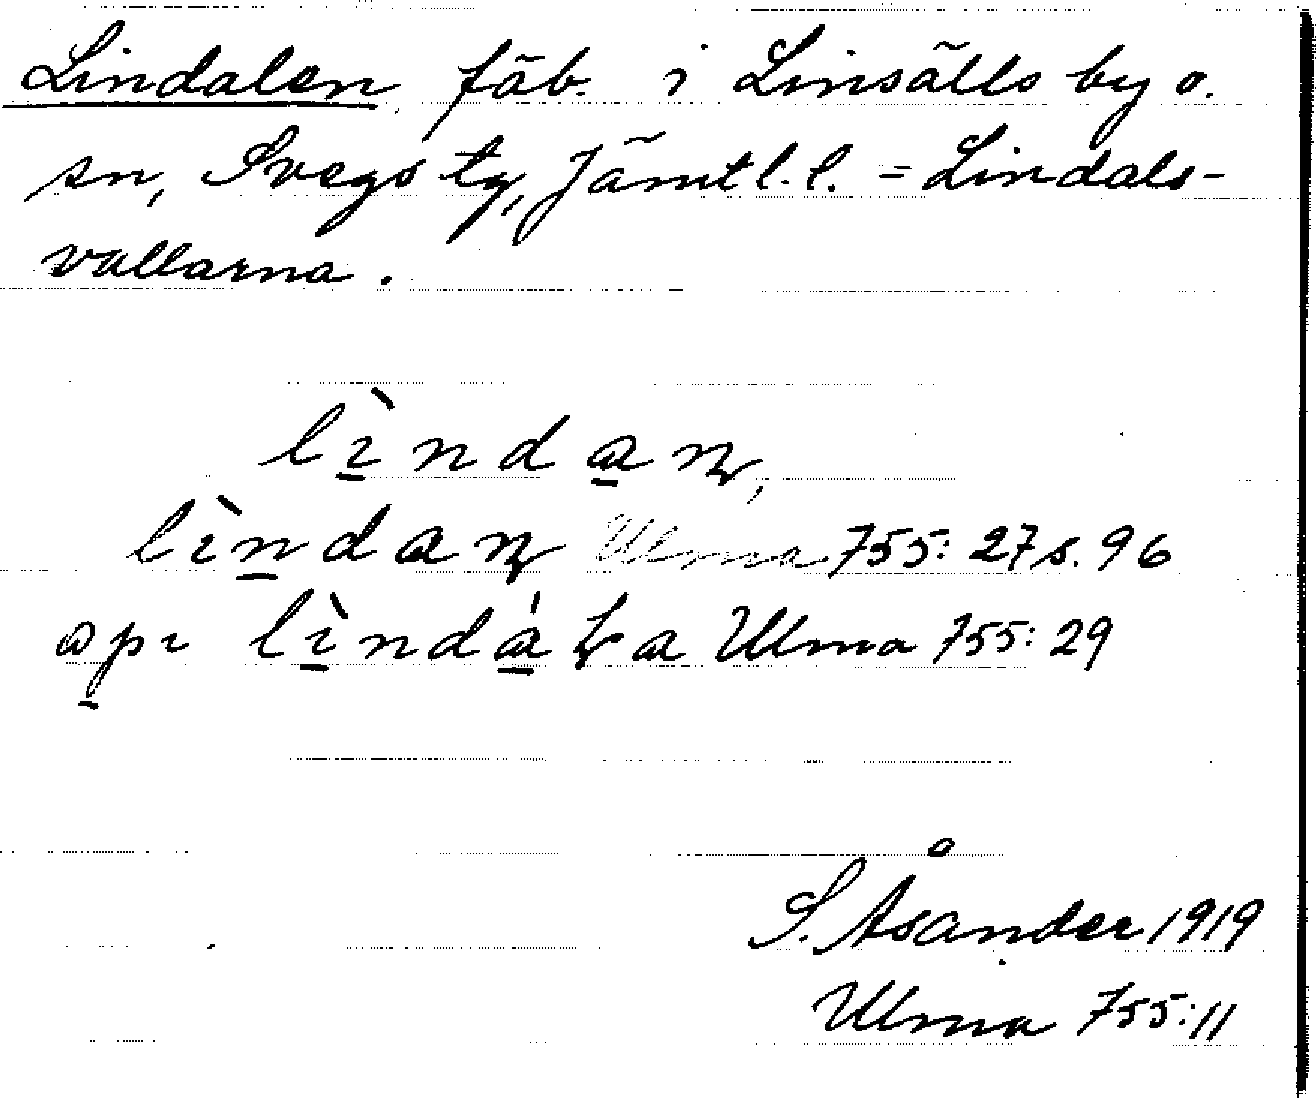 Lindalen, fäb. i Linsälls by o.
sn, Svegs tg, Jämtl. l. = Lindals-
vallarna.
lìndaɳ,
lìndaɳ Ulma 755: 27 s. 96
lìndáɽa Ulma 755: 29
S. Åsander 1919
Ulma 755:11